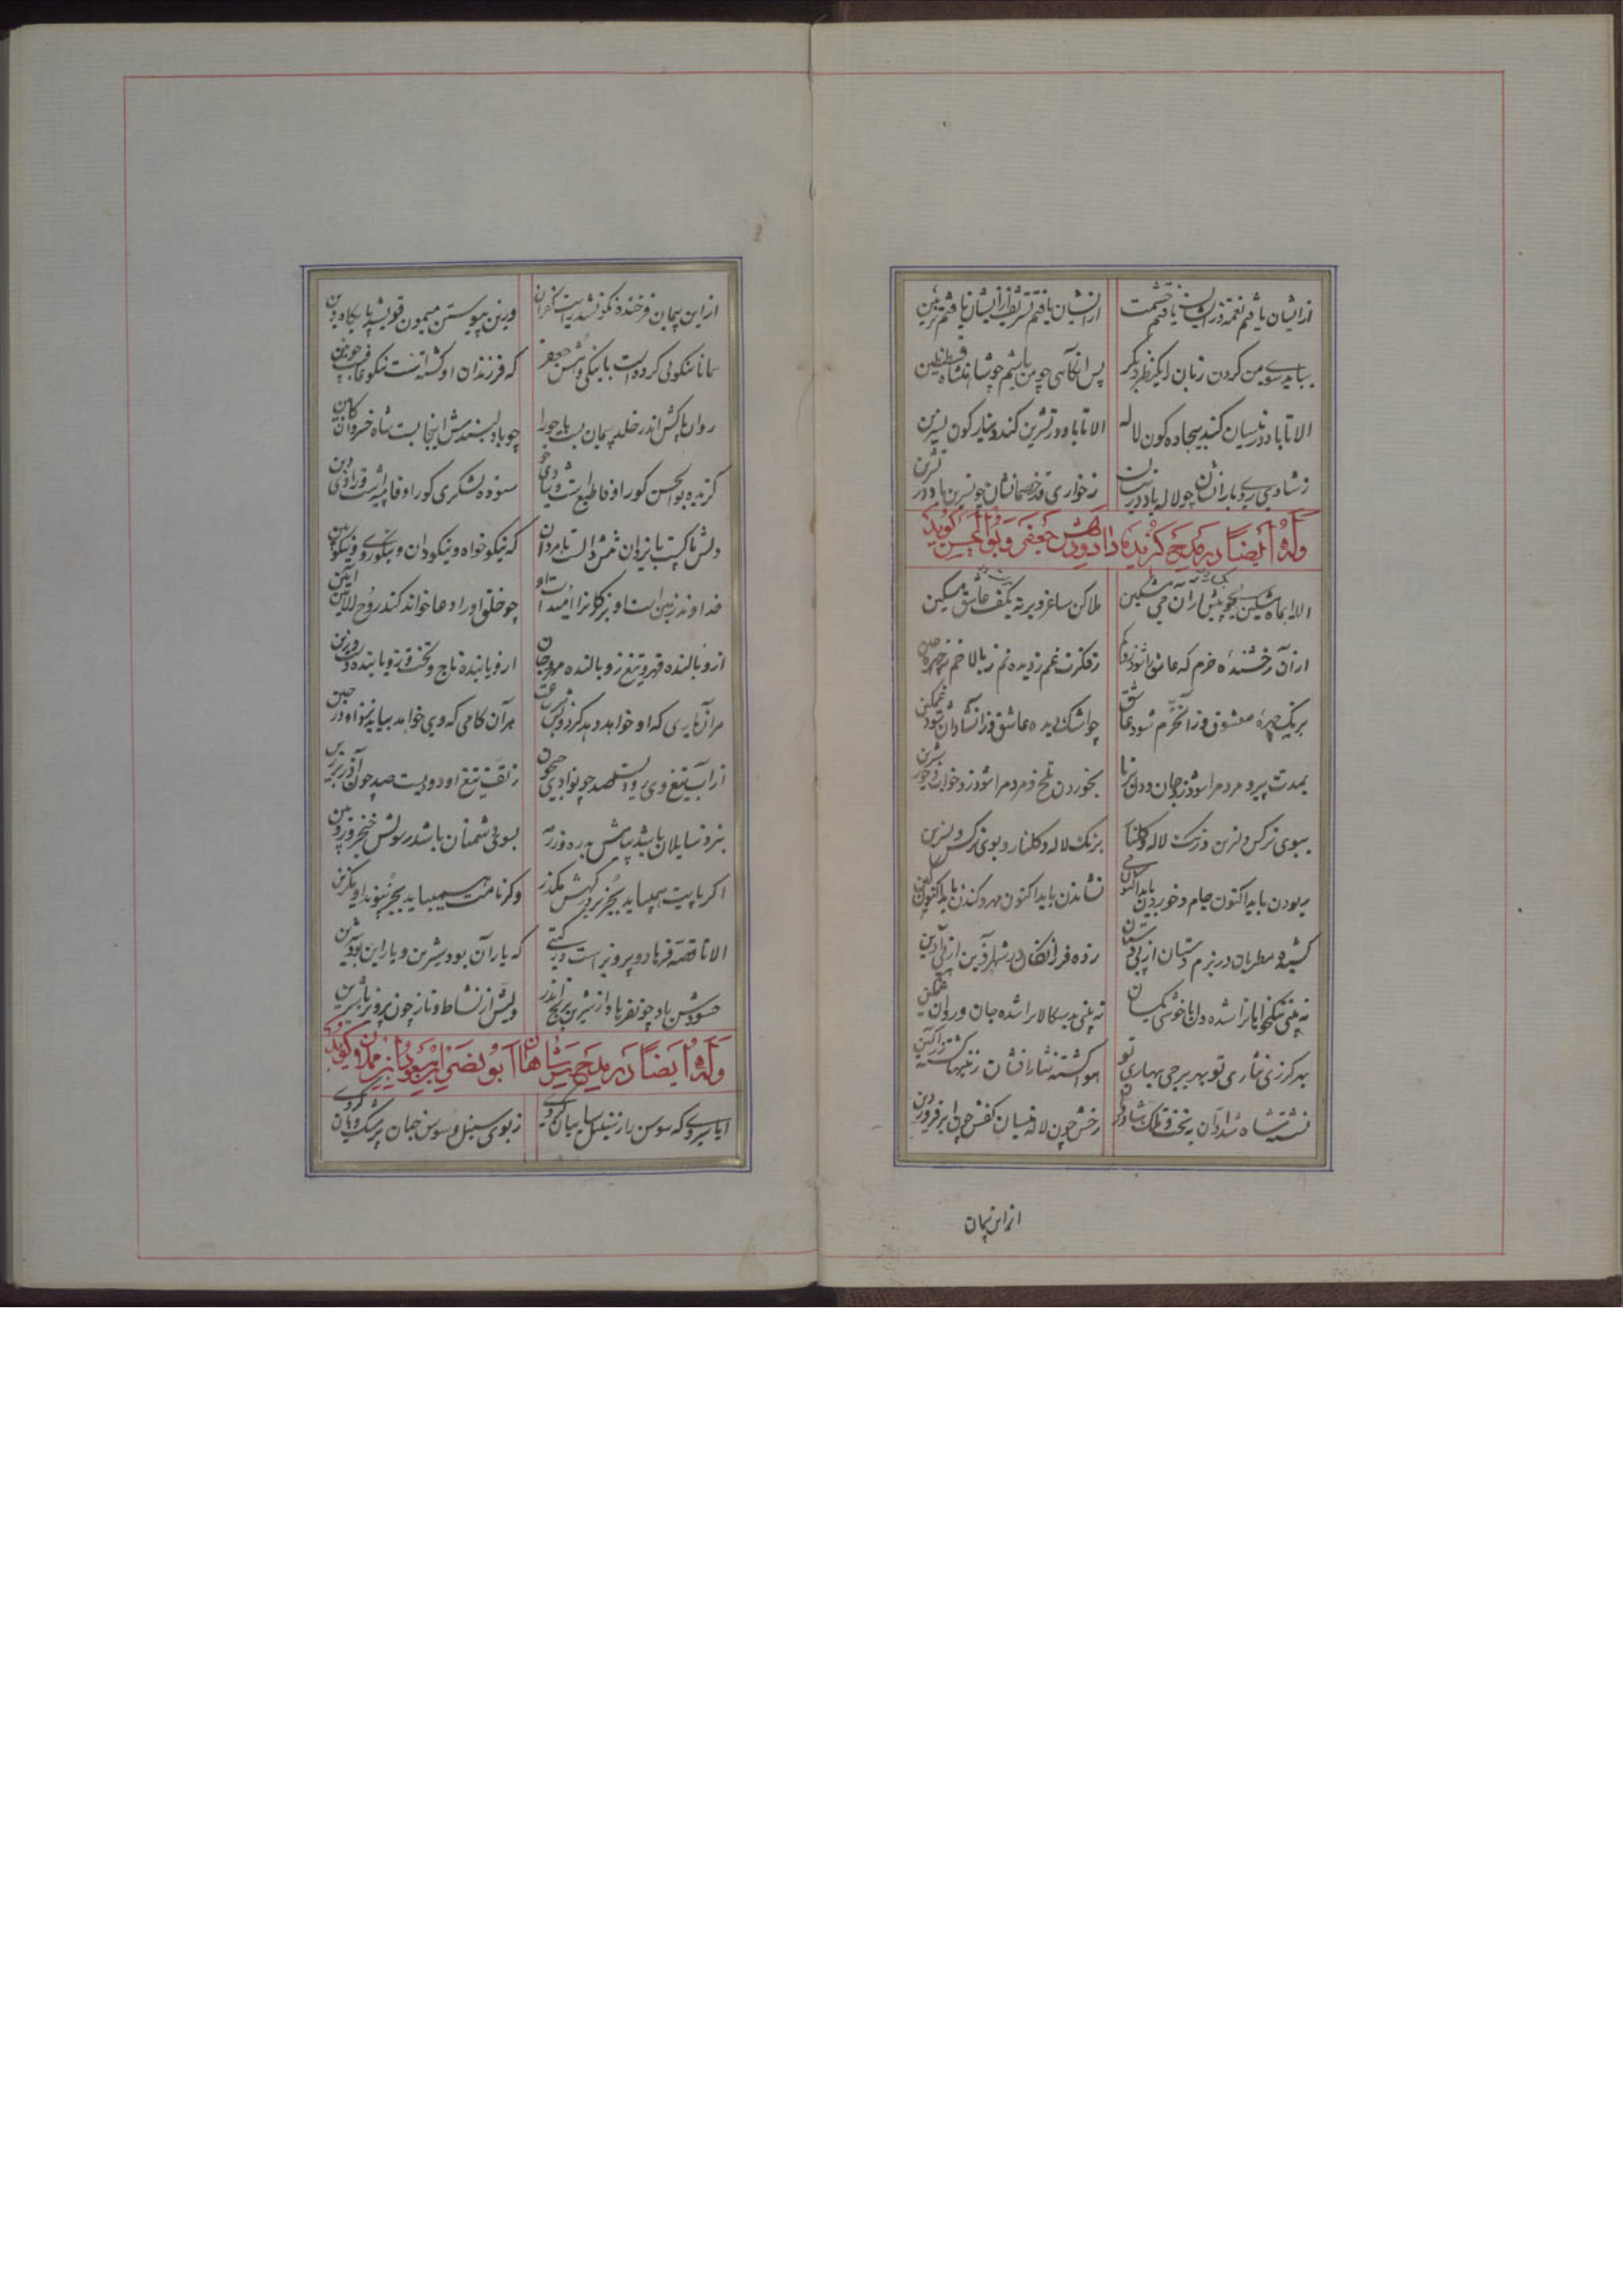 ازایشان یافتم نعمت وزایشان یافتم حشمت ازایشان یافتم تشریف ازایشان یافتم تزیین
بباید سوی من کردن زبان را یک نظر دیگر پس آنگاهی چو من باشم چو شاهنشاه قسطنطین
الا تا باد در نیسان کند بیجاده کون لاله الا تا باد در تشرین کند دینار کون نسرین
ز شادی روی یارانشان چو لاله باد در نیسان ز خواری خصمانشان چو نسرین باد در تشرین
وله ایضا در مدح جعفر و بوالحسن کوید
الا ای ماه مشکین بجو پیش آر آن می مشکین ملا کن ساغر و برنه بکف عاشق مسکین
از آن رخشنده خرم که عاشق را شود زو کم ز فکرت غم ز دیده نم ز بالا خم ز چهره چین
برنک چهره معشوق وز آن خرم شود عاشق چو اشک دیده عاشق وز آن شادان شود غمکین
بمدت پیر و مردم را شود زو جان و دل برنا بخوردن تلخ و مردم را شود زو خواب و خور شیرین
ببوی نرکس و نسرین و رنک لاله و کلنار برنک لاله و کلنار و بوی نرکس و نسرین
ربودن باید اکنون جام و خوردن باید اکنون می نشاندن باید اکنون مهر و کندن باید اکنون کین
کشیده مطربان در بزم دستان از پی دستان زده فرزانکان در شهر آذین از پی آذین
نه بینی نیکخواهانرا شده دل با خوشی یکسان نه بینی بدسکالانرا شده جان و روان همکین
بهر مرزی نثاری نو بهر برجی بهاری نو هوا کشته نثار افشان زمینها کشته زر آکین
نشسته شاه شدادان به تخت ملک شاد و خوش رخش چون لاله نیسان کفش چون ابر فروردین
از این پیمان
از این پیمان فرخنده نکون شد رایت کفران وزین پیوستن میمون قوی شد پایگاه دین
همانا نیکوئی کرده است با نیکی دهش جعفر که فرزندان او کشته است نیکو عاقبت چونین
روان پاکش اندر خلد پیمان بست با حورا چو پیوندش اینجا بست شاه خسروان کابین
کزیده بوالحسن کو را وفا طبع است و شادی خو ستوده لشکری کو را وفا پیشه است و رادی دین
دلش پاکست با یزدان تنش راست با مردان که نیکو خواه و نیکو دان و نیکو روی و نیکو بین
خداوند زمین است او بزرکانرا امید است او چو خلق او را دعا خواند کند روح الامین آمین
ازو بالنده فهر و تیغ زو بالنده مهر و جان ازو پاینده تاج و تخت و زو پاینده داد و دین
مر آن یاری که او خواهد دهد کردونش در ساعت هر آن کامی که وی خواهد بیاید نزد او در حین
از آب تیغ وی رودیست صد چون وادی جیحون ز تف تیغ او دودیست صد چون آذر برزین
بنزد سایلان باشد پیامش بدره و رزمه بسوی دشمنان باشد رسولش خنجر و زوپین
اکر پایت همی باید بجز نزد درکهش مکذر وکر نامت همی باید بجز پیوند او مکزین
الا تا قصه فرهاد و پرویز است در کیتی که یار آن بود شیرین و یار این بود شیرین
حسودش باد چو فرهاد از شیرین برنج اندر ولیش از نشاط و ناز چون پرویز با شیرین
وله ایضا در مدح شاه شاهان ابو نصر مملان کوید
ایا سروی که سوسن را ز سنبل سایبان کردی ز بوی سنبل و سوسن جهان پر مشک و بان کردی